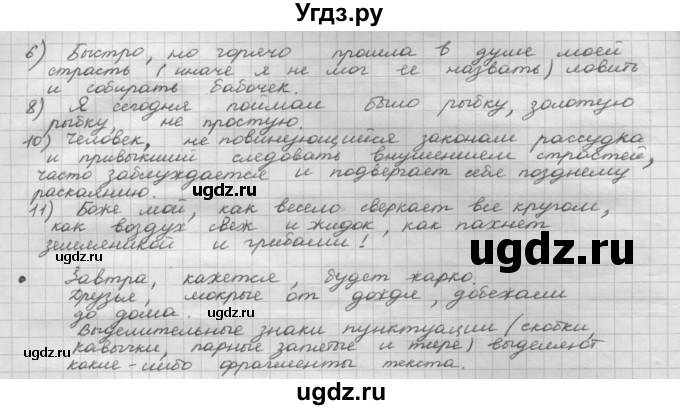 Угдз.ру
6) Быстро, но горячо прошла в душе моей
страсть (иначе я не мог ее назвать) ловить
и собирать бабочек.
8) Я сегодня поймал было рыбку, золотую
рыбку, не простую.
10) Человек, не повинующийся законам рассудка
и привыкший следовать внушением страстей,
часто заблуждается и подвергает себя позднему
раскаянию.
11) Боже мой, как весело сверкает все кругом,
как воздух свеж и жидок, как пахнет
земляникой и грибами!
Завтра, кажется, будет жарко.
Друзья, мокрые от дождя, добежали
до дома.
Выделительные знаки пунктуации (скобки,
кавычки, парные запятые и тире) выделяют
какие-либо фрагменты текста.
ugdz.ru
ugdz.ru
ugdz.ru
ugdz.ru
ugdz.ru
ugdz.ru
ugdz.ru
ugdz.ru